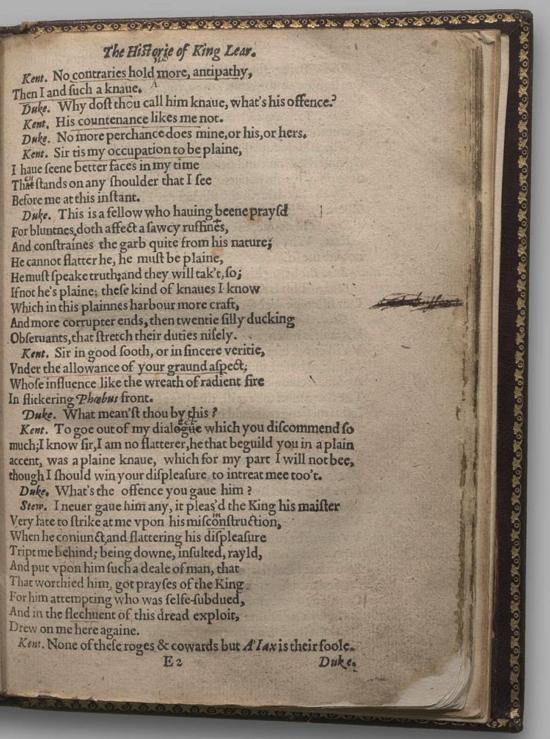 The Historie of King Lear.
Kent. No contraries hold more, antipathy,
Then I and such a knaue.
Duke. Why dost thou call him knaue, what's his offence?
Kent. His countenance likes me not.
Duke. No more perchance does mine, or his, or hers.
Kent. Sir tis my occupation to be plaine,
I haue seene better faces in my time
That stands on any shoulder that I see
Before me at this instant.
Duke. This is a fellow who hauing beene praysd
For bluntnes, doth affect a sawcy ruffines,
And constraines the garb quite from his nature;
He cannot flatter he, he must be plaine,
He must speake truth; and they will tak't, so;
If not he's plaine; these kind of knaues I know
Which in this plainnes harbour more craft,
And more corrupter ends, then twentie silly ducking
Obseruants, that stretch their duties nisely.
Kent. Sir in good sooth, or in sincere veritie,
Vnder the allowance of your graund aspect;
Whose influence like the wreath of radient fire
In flickering Phœbus front.
Duke. What mean'st thou by this?
Kent. To goe out of my dialogue which you discommend so
much; I know sir, I am no flatterer, he that beguild you in a plain
accent, was a plaine knaue, which for my part I will not bee,
though I should win your displeasure to intreat mee too't.
Duke. What's the offence you gaue him?
Stew. I neuer gaue him any, it pleas'd the King his maister
Very late to strike at me vpon his misconstruction,
When he coniunct and flattering his displeasure
Tript me behind; being downe, insulted, rayld,
And put vpon him such a deale of man, that
That worthied him, got prayses of the King
For him attempting who was selfe-subdued,
And in the flechuent of this dread exploit,
Drew on me here againe.
Kent. None of these roges & cowards but A'Iax is their foole.
E 2 Duke.